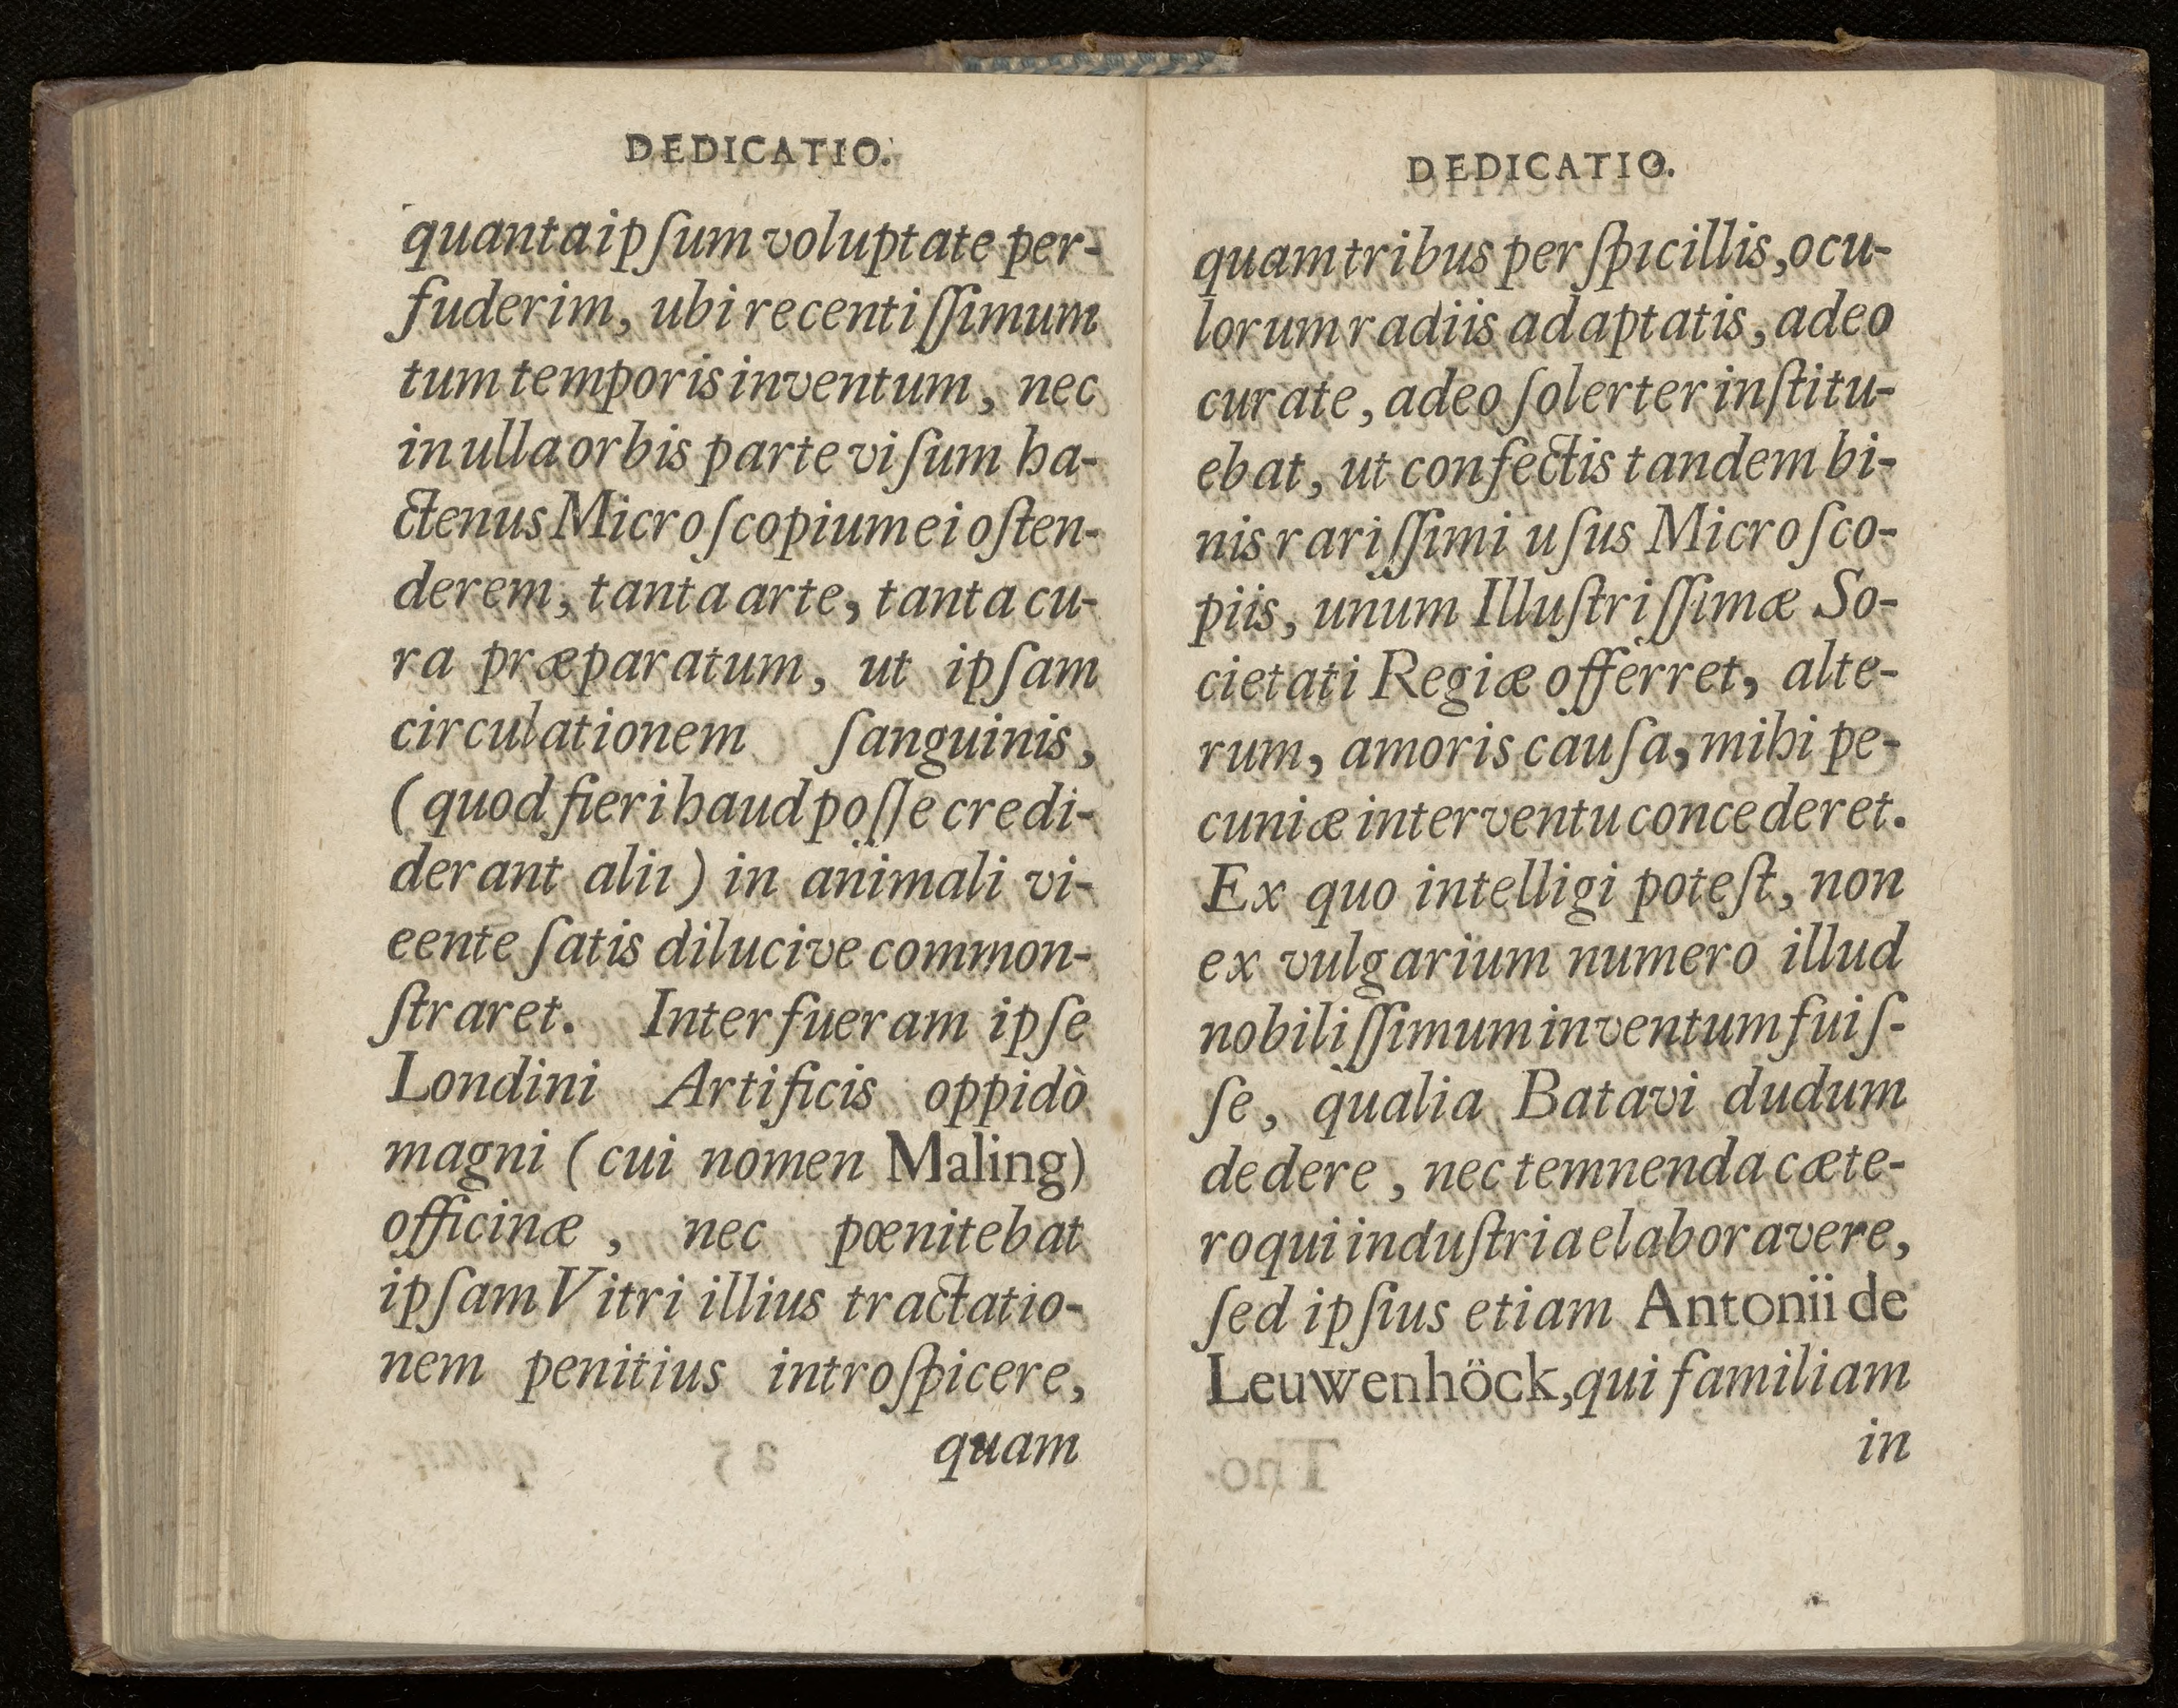 DEDICATIO.
quanta ipſum voluptate per-
fuderim, ubi recentiſſimum
tum temporis inventum, nec
in ulla orbis parte viſum ha-
ctenus Microſcopium ei oſten-
derem, tanta arte, tanta cu-
ra præparatum, ut ipſam
circulationem ſanguinis,
(quod fieri haud poſſe credi-
derant alii) in animali vi-
eente ſatis dilucive common-
ſtraret. Interfueram ipſe
Londini Artificis oppidò
magni (cui nomen Maling)
officinæ, nec pœnitebat
ipſam Vitri illius tractatio-
nem penitius introſpicere,
quam
DEDICATIO.
quam tribus perſpicillis, ocu-
lorum radiis adaptatis, adeo
curate, adeo ſolerter inſtitu-
ebat, ut confectis tandem bi-
nis rariſſimi uſus Microſco-
piis, unum Illuſtriſſimæ So-
cietati Regiæ offerret, alte-
rum, amoris cauſa, mihi pe-
cuniæ interventu concederet.
Ex quo intelligi poteſt, non
ex vulgarium numero illud
nobiliſſimum inventum fuiſ-
ſe, qualia Batavi dudum
dedere, nec temnenda cæte-
roqui induſtria elaboravere,
ſed ipſius etiam Antonii de
Leuwenhöck, qui familiam
in